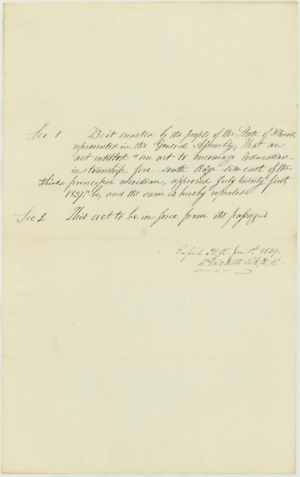 Sec 1 Be it enacted by the people of the State of Illinois
represented in the General Assembly, That an
act entitled "an act to encourage Education
in township five south Rge six east of the
third principal meridian, approved July twenty first
1837," be, and the same is hereby repealed.
Sec 2 This act to be in force from its passage
Passed H. R. Jan 1st